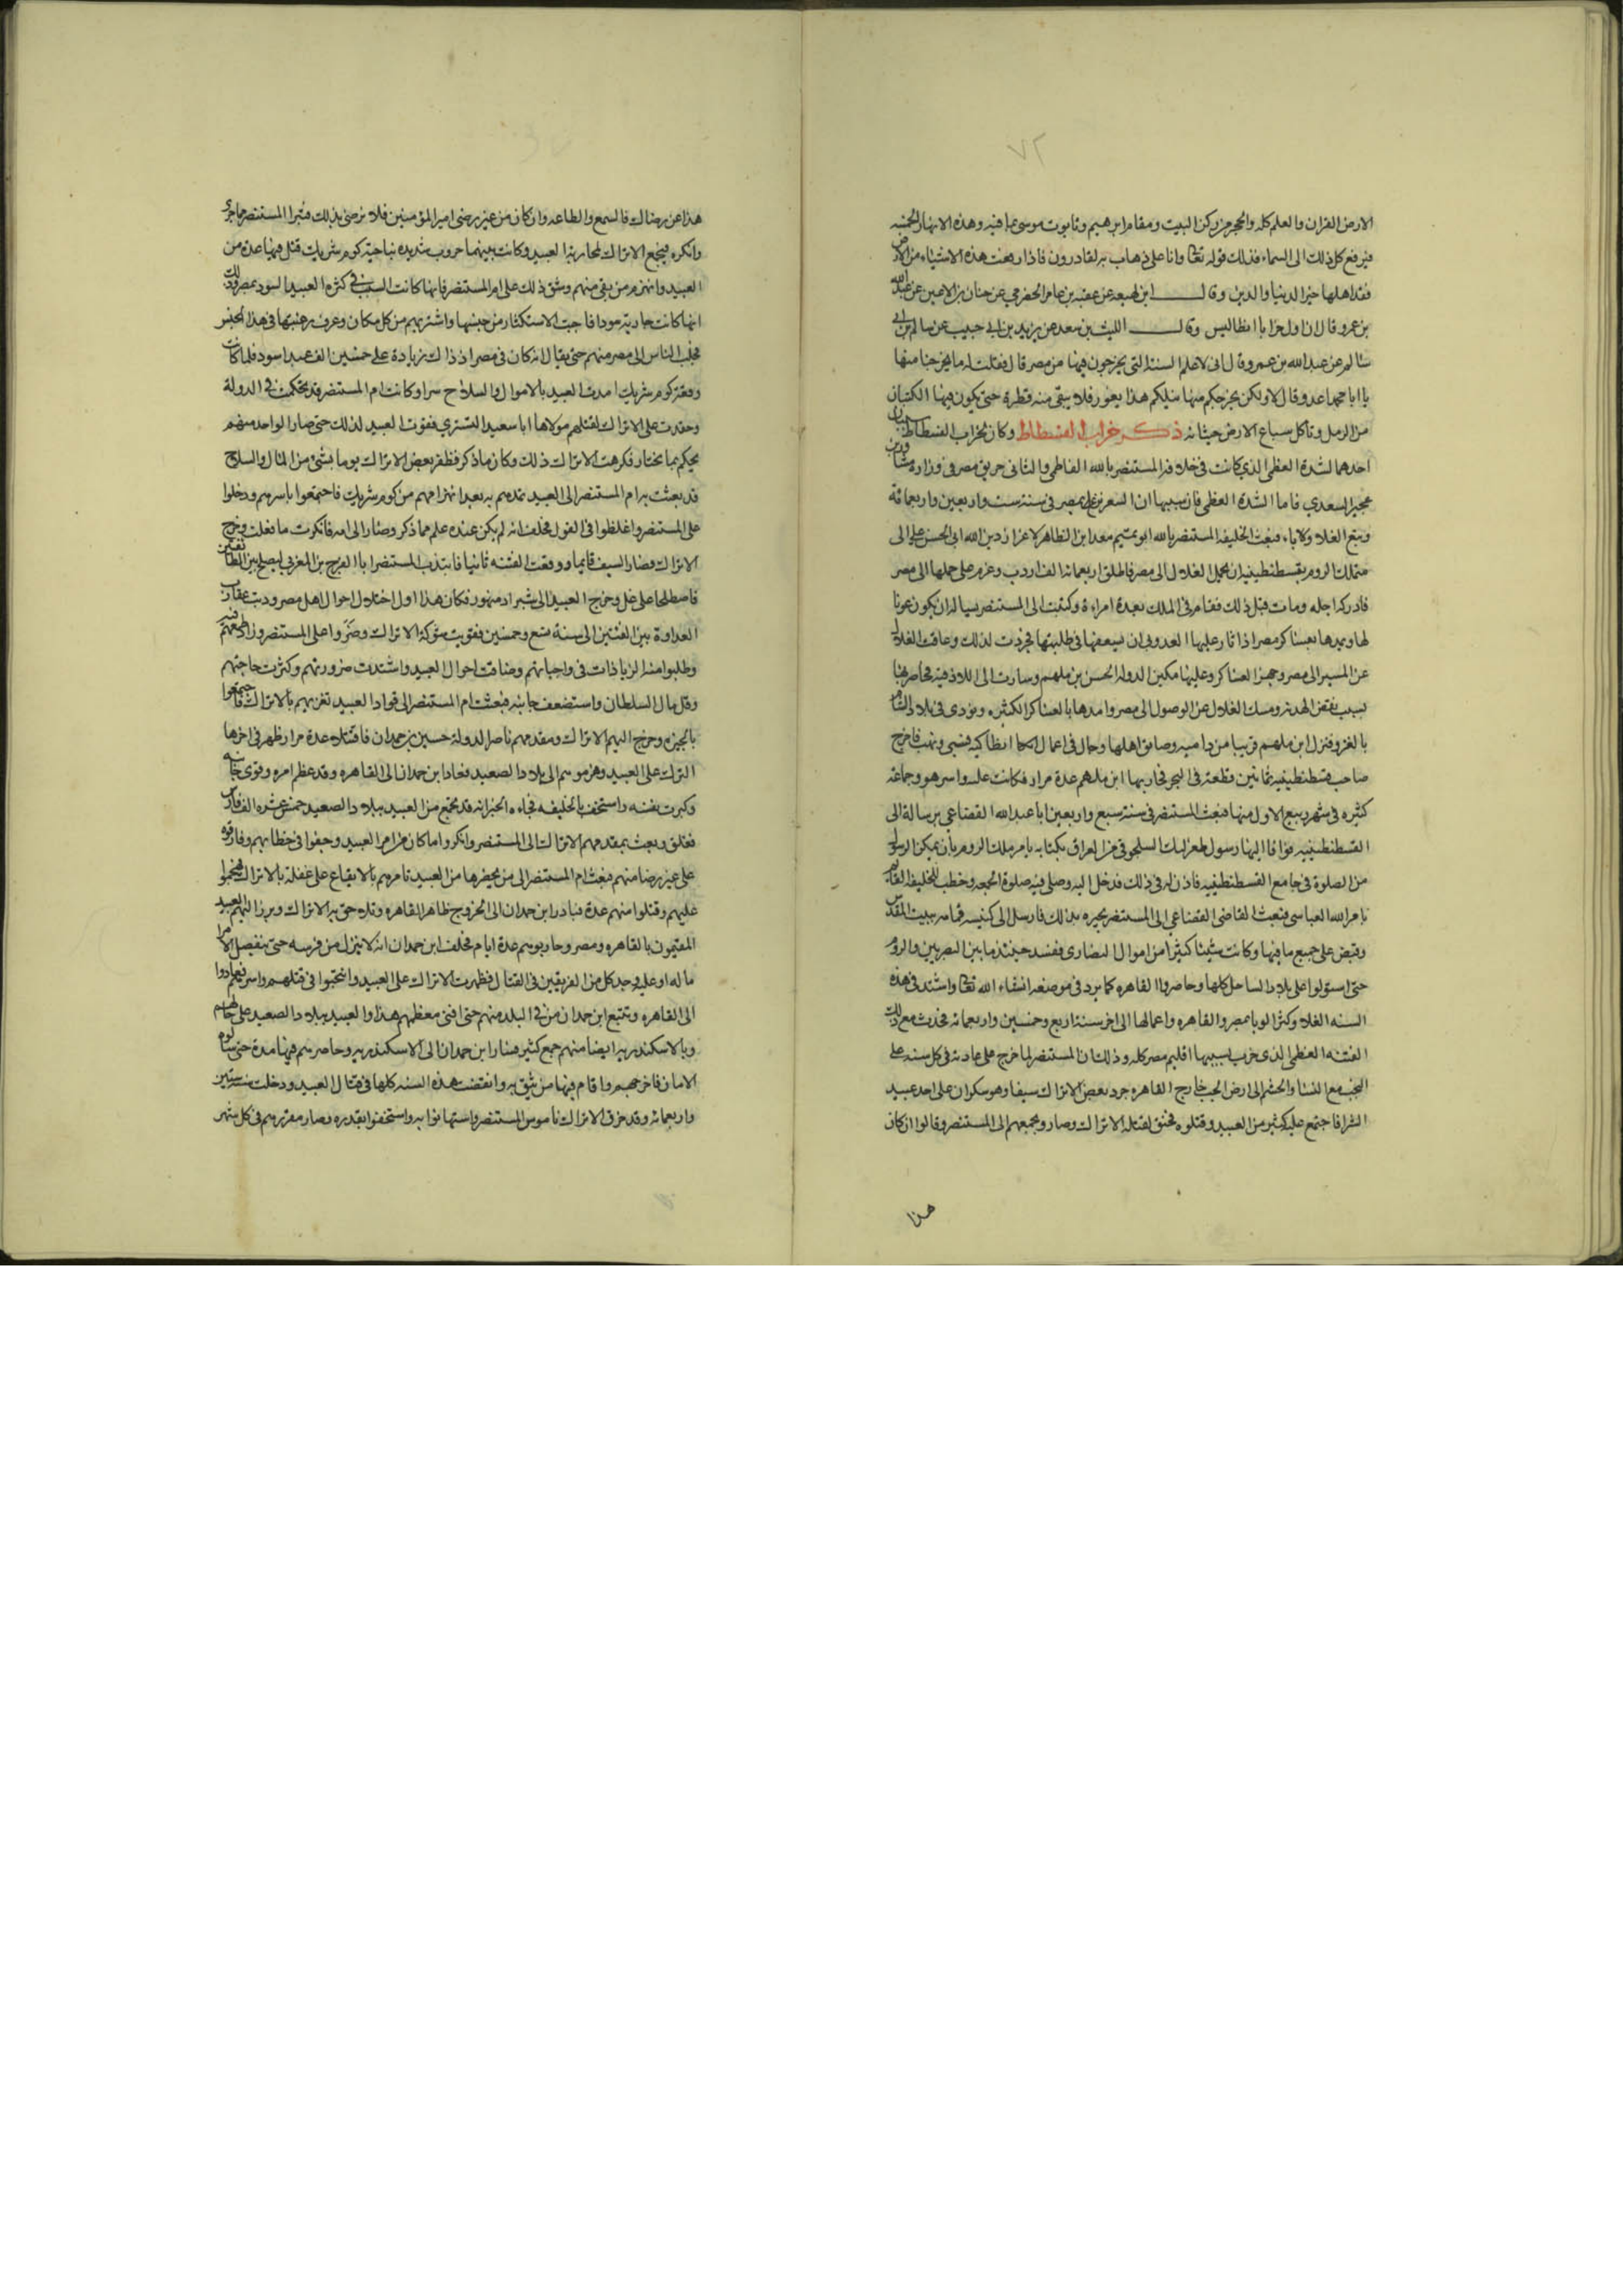 ٧٢
الارض القران والعلم كله والحجر من ركن البيت ومقام ابرهيم وتابوت موسى بما فيه وهذه الانهار الخمسه
فيرفع كل ذلك الى السماء فذلك قوله تعالى وانا على ذهاب به لقادرون فاذا رفعت هذه الاشياء من الارض
فقد اهلها خير الدنيا والدين وقال ابن لهيعه عن عقبه بن عامر الحضرمي عن حنان بن الاعين عن عبد الله
بن عمرو قال ان اول خرابا انطابلس وقال الليث بن سعد عن يزيد بن ابي حبيب عن سالم بن ابي
سالم عن عبد الله بن عمرو قال انى لاعلم السنة التى يخرجون فيها من مصر قال فقلت له ما يخرجنا منها
يا ابا محمد اعدو قال لا ولكن يخرجكم منها نيلكم هذا يغور فلا يبقى منه قطرة حتى يكون فيه الكثبان
من الرمل وتاكل سباع الارض حيتانه ذكر خراب الفسطاط وكان لخراب الفسطاط سببان
احدهما الشدة العظمى الذى كانت فى خلافة المستنصر بالله الفاطمى والثانى حريق مصر فى وزارة شاور بن
مجير السعدي فاما الشدة العظمى فان سببها ان السعر نزع بمصر فى سنة ست واربعين واربعمائة
وتبع الغلاء وباء فبعث الخليفه المستنصر بالله ابو تميم معد ابن الظاهر لاعزاز دين الله ابى الحسن على الى
متملك الروم بقسطنطينيه ان يحمل الغلال الى مصر فاطلق اربعمائة الف اردب وعزم على حملها الى مصر
فادركه اجله ومات قبل ذلك فقام فى الملك بعده امراة وكتبت الى المستنصر تساله ان يكون عونا
لها ويمدها بعساكر مصر اذا ثار عليها احد فابى ان يسعفها فى طلبتها فجردت لذلك وعاقت الغلال
عن المسير الى مصر وجهز العساكر وعليها مكين الدوله الحسن بن ملهم وسارت الى اللاذقيه فحاصرها
بسبب نقض الهدنه ومسك الغلال عن الوصول الى مصر وامدها بالعساكر الكثيره ونودى فى بلاد الشام
بالغزو فنزل ابن ملهم قريبا من فاميه وضايق اهلها وجال فى اعمال انطاكيه فسبى ونهب فاخرج
صاحب قسطنطينيه ثمانين قطعة فى البحر فحاربها ابن ملهم عدة مرار فكانت عليه واسر هو وجماعة
كثيره فى شهر ربيع الاول منها فبعث المستنصر فى سنة سبع واربعين ابا عبد الله القضاعي برسالة الى
القسطنطينيه فوافا اليها رسول طغرلبك السلجوقى من العراق بكتابه يامر ملك الروم بان يمكن الرسول
من الصلوة فى جامع القسطنطينيه فاذن له فى ذلك فدخل اليه وصلى فيه صلوة الجمعه وخطب للخليفه القائم
بامر الله العباسى فبعث القاضى القضاعي الى المستنصر يخبره بذلك فارسل الى كنيسه قمامه ببيت المقدس
وقبض على جميع ما فيها وكانت شيئا كثيرا من اموال النصارى ففسد حينئذ ما بين المصريين والروم
حتى استولوا على بلاد الساحل كلها وحاصروا القاهره كما يرد فى موضعه انشاء الله تعالى واشتد فى هذه
السنه الغلاء وكثر الوبا بمصر والقاهره واعمالها الى اخر سنة اربع وخمسين واربعمائه فحدث مع ذلك
الفتنه العظمى الذى خرب بسببها اقليم مصر كله وذلك ان المستنصر لما خرج على عادته فى كل سنه على
النجب مع النسا والحشم الى ارض الجب خارج القاهره جرد بعض الاتراك سيفا وهو سكران على احد عبيد
الشرا فاجتمع عليه كثير من العبيد وقتلوه فحنق لقتله الاتراك وصاروا بجمعهم الى المستنصر وقالوا ان كان
هذا
هذا عن رضاك فالسمع والطاعه وان كان من غير رضى امير المؤمنين فلا نرضى بذلك فتبرا المستنصر مما جرى
وانكره فتجمع الاتراك لمحاربة العبيد وكانت بينهما حروب شديده بناحية كوم شريك قتل فيها عدة من
العبيد وانهزم من بقى منهم وشق ذلك على ام المستنصر فانها كانت السبب فى كثره العبيد السود بمصر وذلك
انها كانت جارية سودا فاحبت الاستكثار من جنسها واشترتهم من كل مكان وعرف رغبتها فى هذا الجنس
فجلب الناس الى مصر منهم حتى يقال انه كان فى مصر اذ ذاك زيادة على خمسين الف عبد اسود فلما كانت
وقعة كوم شريك امدت العبيد بالاموال والسلاح سرا وكانت ام المستنصر قد تحكمت فى الدولة
وحقدت على الاتراك لقتلهم مولاها ابا سعيد التستري فقوت العبيد لذلك حتى صار الواحد منهم
يحكم بما يختار فكرهت الاتراك ذلك وكان ما ذكر فظفر بعض الاتراك يوما بشىء من المال والسلاح
قد بعثت به ام المستنصر الى العبيد تمدهم به بعد انهزامهم من كوم شريك فاجتمعوا باسرهم ودخلوا
على المستنصر واغلظوا فى القول فحلف انه لم يكن عنده علم مما ذكر وصار الى امه فانكرت ما فعلت وخرج
الاتراك فصار السيف قايما ووقعت الفتنه ثانيا فانتدب المستنصر ابا الفرج بن المغربى ليصلح بين الطائفتين
فاصطلحا على غل وخرج العبيد الى شبرا دمنهور فكان هذا اول اختلال احوال اهل مصر ودبت عقارب
العداوة بين الفئتين الى سنة تسع وخمسين فقويت شوكة الاتراك وضروا على المستنصر وزاد طمعهم فيه
وطلبوا منه الزيادات فى واجباتهم وضاقت احوال العبيد واشتدت ضرورتهم وكثرت حاجتهم
وقل مال السلطان واستضعف جانبه فبعثت ام المستنصر الى قواد العبيد تغريهم بالاتراك فاجتمعوا
بالجيزه وخرج اليهم الاتراك ومقدمهم ناصر الدولة حسين بن حمدان فاقتتلا عدة مرار ظهر فى اخرها
الترك على العبيد وهزموهم الى بلاد الصعيد فعاد ابن حمدان الى القاهره وقد عظم امره وقوى جانبه
وكبرت نفسه واستخف بالخليفه فجاءه الخبر انه قد تجمع من العبيد ببلاد الصعيد خمسه عشره الف فارس
فقلق وبعث بمقدمهم الاتراك الى المستنصر وانكروا ما كان من امر العبيد وجفوا فى خطابهم وفارقوه
على غير رضا منهم فبعثت ام المستنصر الى من بحضرها من العبيد تامرهم بالايقاع على غفلة بالاتراك فهجموا
عليهم وقتلوا منهم عدة فبادر ابن حمدان الى الخروج ظاهر القاهره وتلاحق به الاتراك وبرز اليهم العبيد
المقيمون بالقاهره ومصر وحاربوهم عدة ايام فحلف ابن حمدان انه لا ينزل من فرسه حتى ينفصل الامر
ما له او عليه وجد كل من الفريقين فى القتال فظهرت الاتراك على العبيد واثخنوا فى قتلهم واسرهم فعادوا
الى القاهره وتتبع ابن حمدان من فى البلد منهم حتى افنى معظمهم هذا والعبيد ببلاد الصعيد على حالهم
وبالاسكندريه ايضا منهم جمع كثير فسار ابن حمدان الى الاسكندريه وحاصرهم فيها مدة حتى سالوه
الامان فاخرجهم واقام فيها من يثق به وانقضت هذه السنه كلها فى قتال العبيد ودخلت سنة ستين
واربعمائه وقد خرق الاتراك ناموس المستنصر واستهانوا به واستخفوا بقدره وصار مقررهم فى كل شهر